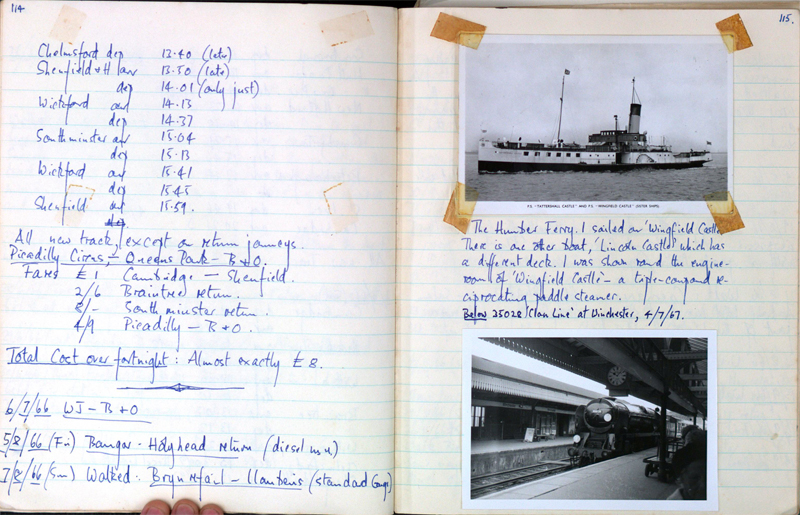 114
Chelmsford dep 13.40 (late)
Shenfield + H arr 13.50 (late)
dep 14.01 (only just)
Wickford arr 14.13
dep 14.37
Southminster arr 15.04
dep 15.13
Wickford arr 15.41
dep 15.45
Shenfield arr 15.59.
All new track, except on return journeys.
Picadilly Circus, – Queens Park – B + O.
Fares £1 Cambridge – Shenfield.
2/6 Braintree return.
8/- Southminster return.
4/9 Picadilly – B + O.
Total Cost over fortnight : Almost exactly £8.
6/7/66 WJ – B + O
5/8/66 (Fri) Bangor - Holyhead return (diesel m.u.)
7/8/66 (Sun) Walked : Brynrefail – Llanberis (standard Gauge)
115.
P.S. "TATTERSHALL CASTLE" AND P.S. "WINGFIELD CASTLE" (SISTER SHIPS)
The Humber Ferry. I sailed on 'Wingfield Castle'
There is one other boat, 'Lincoln Castle' which has
a different deck. I was shown round the engine-
room of 'Wingfield Castle' – a triple-compound re-
ciprocating paddle steamer.
Below 35028 'Clan Line' at Winchester, 4/7/67.